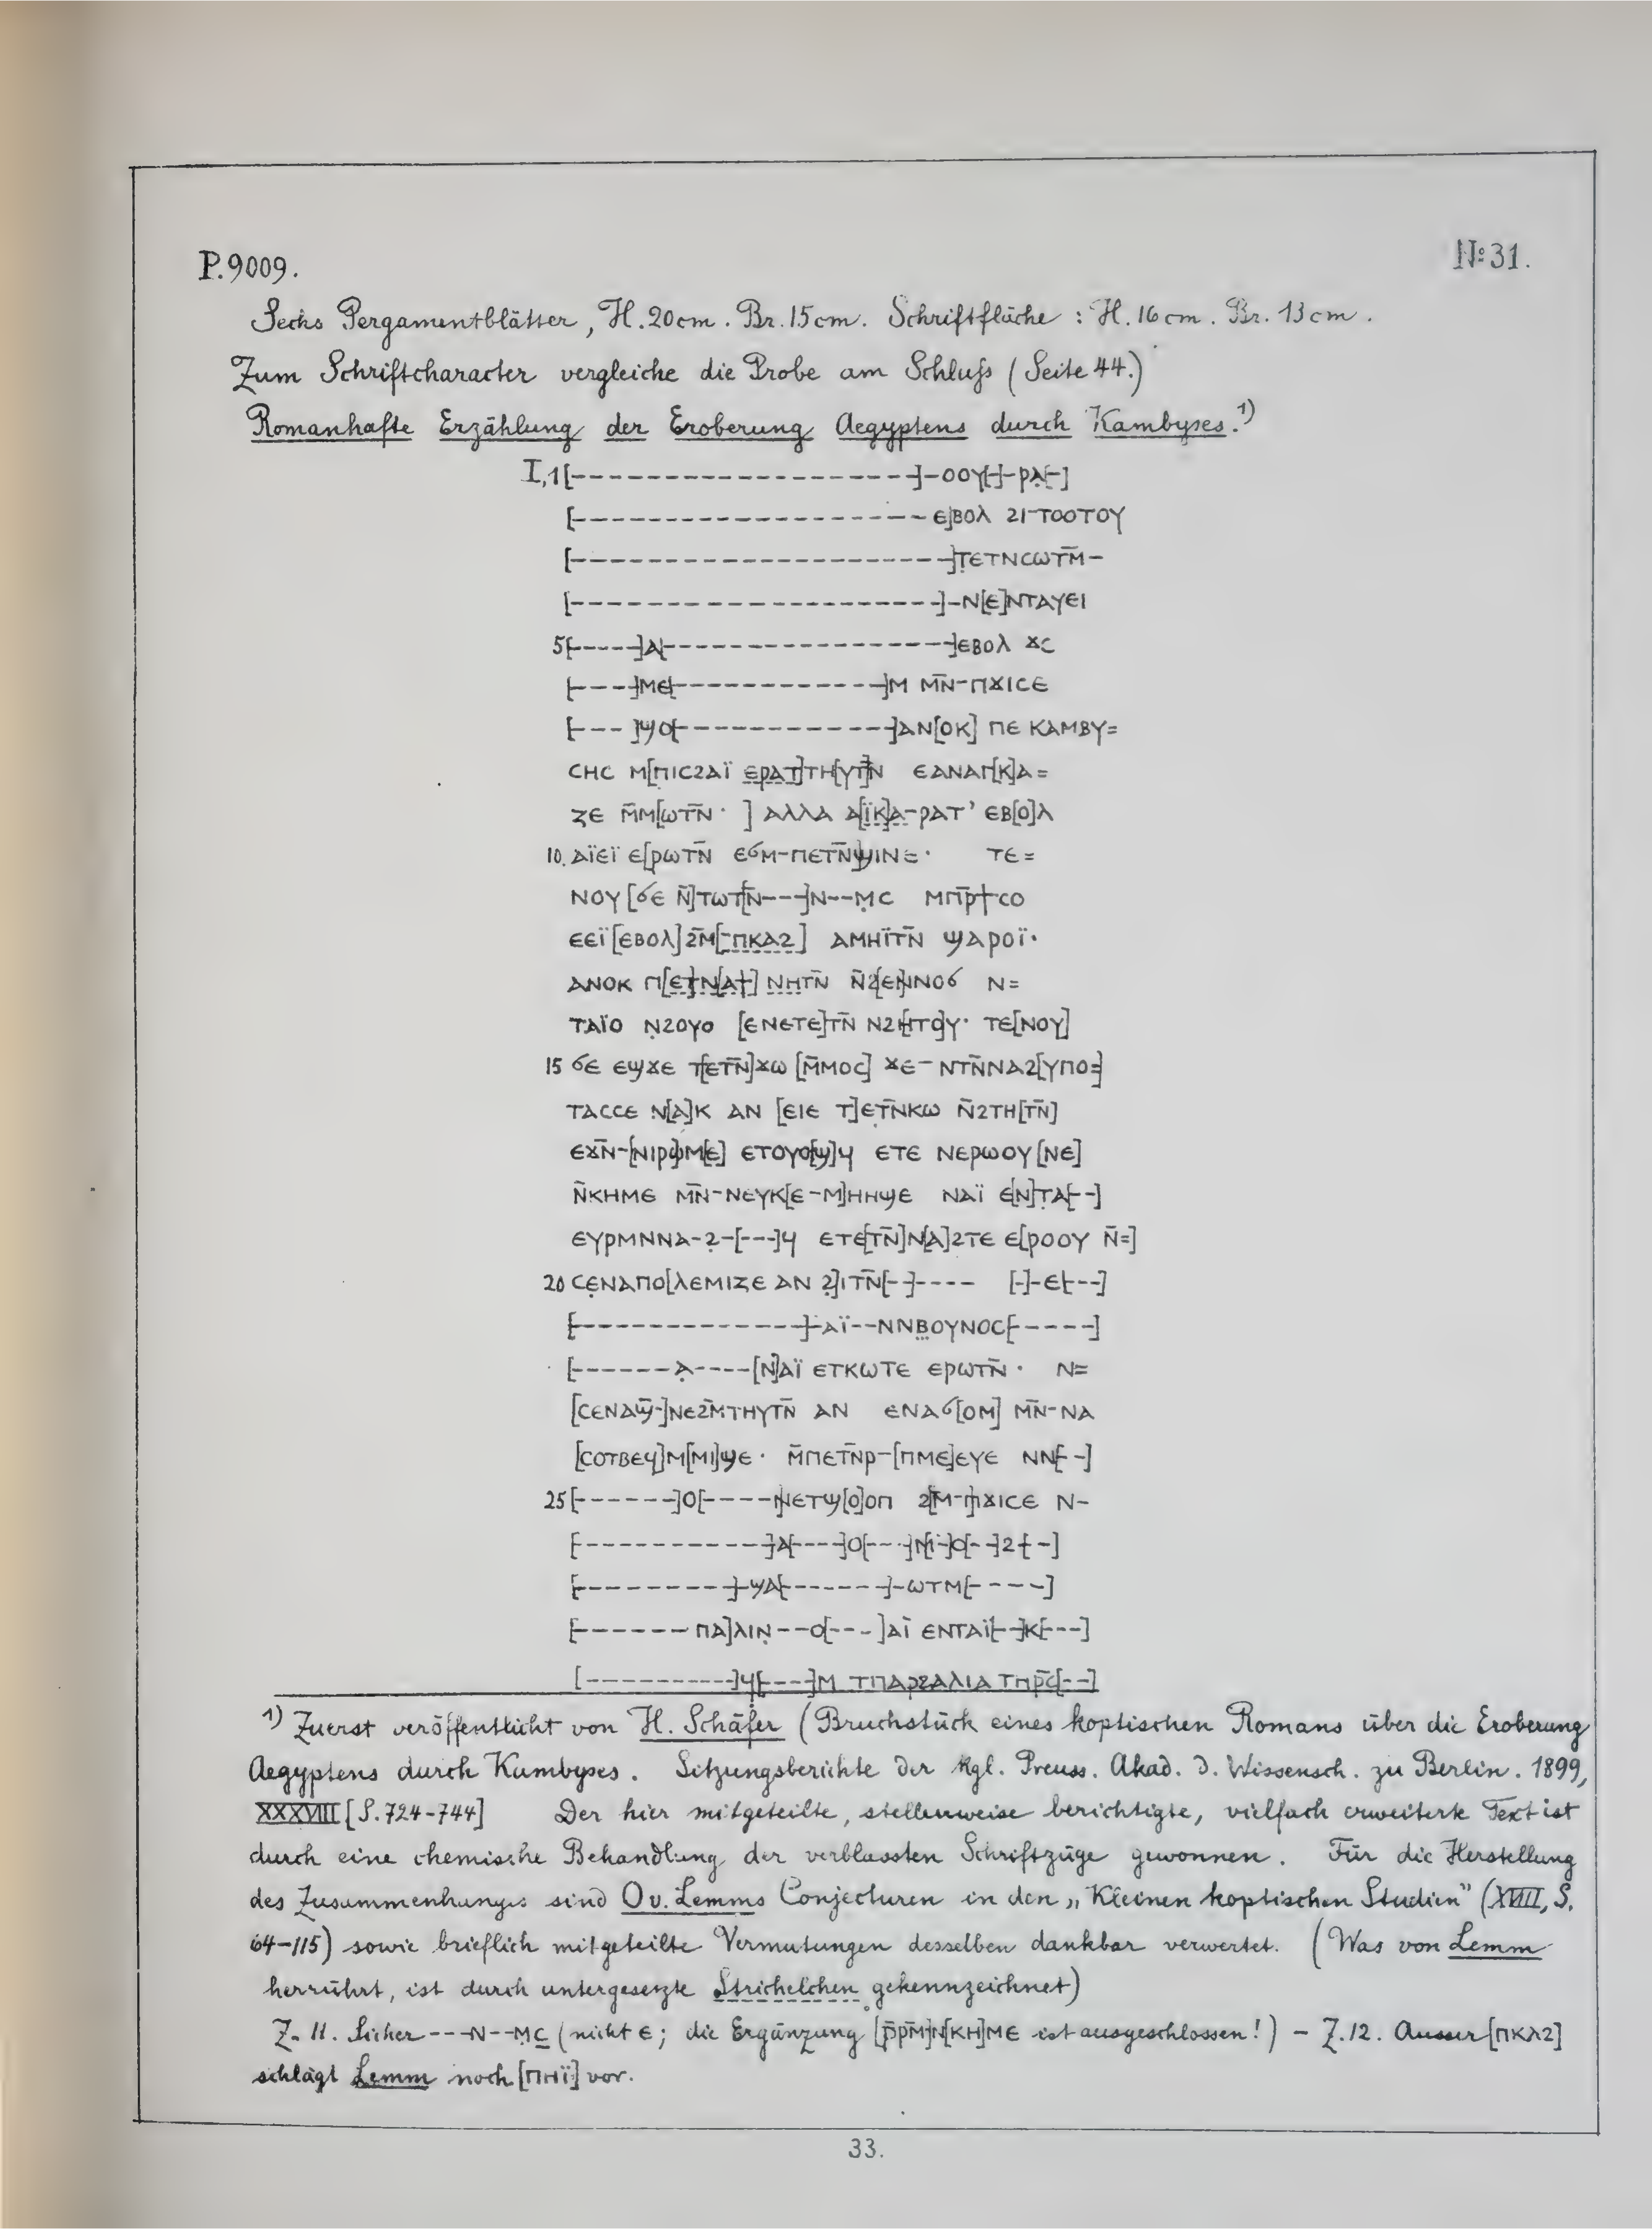 P.9009.
№ 31.
Sechs Pergamentblätter, H. 20 cm. Br. 15 cm. Schriftfläche : H. 16 cm. Br. 13 cm.
Zum Schriftcharacter vergleiche die Probe am Schluſs (Seite 44.)
Romanhafte Erzählung der Eroberung Aegyptens durch Kambyses.¹)
I,1 [--------------------]-ⲟⲟⲩ[-]-ⲣⲁ̣[-]
[-------------------- ⲉ]ⲃⲟⲗ ϩⲓ-ⲧⲟⲟⲧⲟⲩ
[----------------------]ⲧ̣ⲉⲧⲛⲥⲱⲧⲙ̄-
[---------------------]-ⲛ[ⲉ]ⲛⲧⲁⲩⲉⲓ
5 [----]ⲁ[-----------------]ⲉⲃⲟⲗ ϫⲥ
[---]ⲙⲉ[------------]ⲙ ⲙⲛ̄-ⲡϫⲓⲥⲉ
[---]ϣⲟ[------------]ⲁⲛ[ⲟⲕ] ⲡⲉ ⲕⲁⲙⲃⲩ=
ⲥⲏⲥ ⲙ[ⲡⲓⲥϩⲁⲓ̈ ⲉⲣⲁⲧ]ⲧⲏ[ⲩⲧ]ⲛ̄ ⲉⲁⲛⲁⲅ[ⲕ]ⲁ=
ⲍⲉ ⲙ̄ⲙ[ⲱⲧⲛ̄ · ] ⲁⲗⲗⲁ ⲁ[ⲓ̈ⲕ]ⲁ-ⲣⲁⲧ' ⲉⲃ[ⲟ]ⲗ
10. ⲁⲓ̈ⲉⲓ̈ ⲉ[ⲣⲱⲧⲛ̄ ⲉϭⲙ-ⲡⲉⲧⲛ̄ϣⲓⲛⲉ · ⲧⲉ=
ⲛⲟⲩ [ϭⲉ ⲛ̄]ⲧⲱⲧ[ⲛ̄---]ⲛ--ⲙ̣ⲥ ⲙⲡⲣ̄ϯⲥⲟ
ⲉⲉⲓ̈ [ⲉⲃⲟⲗ] ϩⲙ̄[-ⲡⲕⲁϩ] ⲁⲙⲏⲓ̈ⲧⲛ̄ ϣⲁⲣⲟⲓ̈·
ⲁⲛⲟⲕ ⲡ[ⲉⲧ]ⲛ[ⲁϯ] ⲛⲏⲧⲛ̄ ⲛ̄ϩ[ⲉⲛ]ⲛⲟϭ ⲛ=
ⲧⲁⲓ̈ⲟ ⲛ̣ϩⲟⲩⲟ [ⲉⲛⲉⲧⲉ]ⲧⲛ̄ ⲛϩ[ⲏⲧⲟ]ⲩ· ⲧⲉ[ⲛⲟⲩ]
15 ϭⲉ ⲉϣϫⲉ ⲧ[ⲉⲧⲛ̄]ϫⲱ [ⲙ̄ⲙⲟⲥ] ϫⲉ-ⲛⲧⲛ̄ⲛⲁϩ[ⲩⲡⲟ=]
ⲧⲁⲥⲥⲉ ⲛ̣[ⲁ]ⲕ ⲁⲛ [ⲉⲓⲉ ⲧ]ⲉⲧ̣ⲛ̄ⲕⲱ ⲛ̄ϩⲧⲏ[ⲧⲛ̄]
ⲉϫⲛ̄-[ⲛⲓⲣⲱ]ⲙ[ⲉ] ⲉⲧⲟⲩⲟ[ϣ]ϥ ⲉⲧⲉ ⲛⲉⲣⲱⲟⲩ [ⲛⲉ]
ⲛ̄ⲕⲏⲙⲉ ⲙⲛ̄-ⲛⲉⲩⲕ[ⲉ-ⲙ]ⲏⲏϣⲉ ⲛⲁⲓ̈ ⲉ[ⲛ]ⲧ̣ⲁ[--]
ⲉⲩⲣⲙⲛⲛⲁ-ϩ̣-[---]ϥ ⲉⲧⲉ[ⲧⲛ̄]ⲛ[ⲁ]ϩⲧⲉ ⲉ[ⲣⲟⲟⲩ ⲛ̄=]
20 ⲥⲉ̣ⲛⲁⲡⲟ[ⲗⲉⲙⲓⲍⲉ ⲁⲛ ϩ]ⲓⲧⲛ̄[--]---- [-]-ⲉ[---]
[--------------]-ⲁⲓ̈--ⲛⲛⲃ̣ⲟⲩⲛⲟⲥ[-----]
[------ⲁ̣----[ⲛ]ⲁⲓ̈ ⲉⲧⲕⲱⲧⲉ ⲉⲣⲱⲧⲛ̄ · ⲛ=
[ⲥⲉⲛⲁϣ̄-]ⲛⲉϩⲙ̄ⲧⲏⲩⲧⲛ̄ ⲁⲛ ⲉⲛⲁϭ[ⲟⲙ] ⲙⲛ̄-ⲛⲁ
[ⲥⲟⲧⲃⲉϥ]ⲙ[ⲙⲓ]ϣⲉ · ⲙ̄ⲡⲉⲧⲛ̄ⲣ-[ⲡⲙⲉ]ⲉⲩⲉ ⲛⲛ[--]
25 [------]ⲟ[----ⲛ]ⲉⲧϣ[ⲟ]ⲟⲡ ϩ[ⲙ-ⲡ]ϫⲓⲥⲉ ⲛ-
[-----------]ⲁ[----]ⲟ[---]ⲛ[-]ⲟ[--]ϩ[--]
[---------]-ϣⲁ[-------]-ⲱⲧⲙ[-----]
[------- ⲡⲁ]ⲗⲓⲛ̣--ⲟ[---]ⲁⲓ̈ ⲉⲛⲧⲁⲓ̈[--]ⲕ[---]
[----------]ϥ[----]ⲙ ⲧⲡⲁⲣϩⲁⲗⲓⲁ ⲧⲏⲣⲥ̄[--]
¹) Zuerst veröffentlicht von H. Schäfer (Bruchstück eines koptischen Romans über die Eroberung
Aegyptens durch Kambyses. Sitzungsberichte der Kgl. Preuss. Akad. d. Wissensch. zu Berlin. 1899,
XXXVIII [S. 724-744] Der hier mitgeteilte, stellenweise berichtigte, vielfach erweiterte Text ist
durch eine chemische Behandlung der verblassten Schriftzüge gewonnen. Für die Herstellung
des Zusammenhanges sind O v. Lemms Conjecturen in den „Kleinen koptischen Studien" (XVIII, S.
64-115) sowie brieflich mitgeteilte Vermutungen desselben dankbar verwertet. (Was von Lemm
herrührt, ist durch untergesetzte Strichelchen gekennzeichnet)
Z. 11. Sicher ---ⲛ--ⲙ̣ⲥ (nicht ⲉ; die Ergänzung [ⲣ̄ⲣⲙ̄]ⲛ[ⲕⲏ]ⲙⲉ ist ausgeschlossen!) - Z. 12. Ausser [ⲡⲕⲁϩ]
schlägt Lemm noch [ⲡⲏⲓ̈] vor.
33.